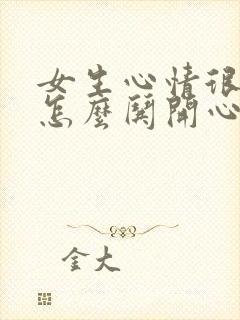 女生心情很
怎麼鬨開心
金大